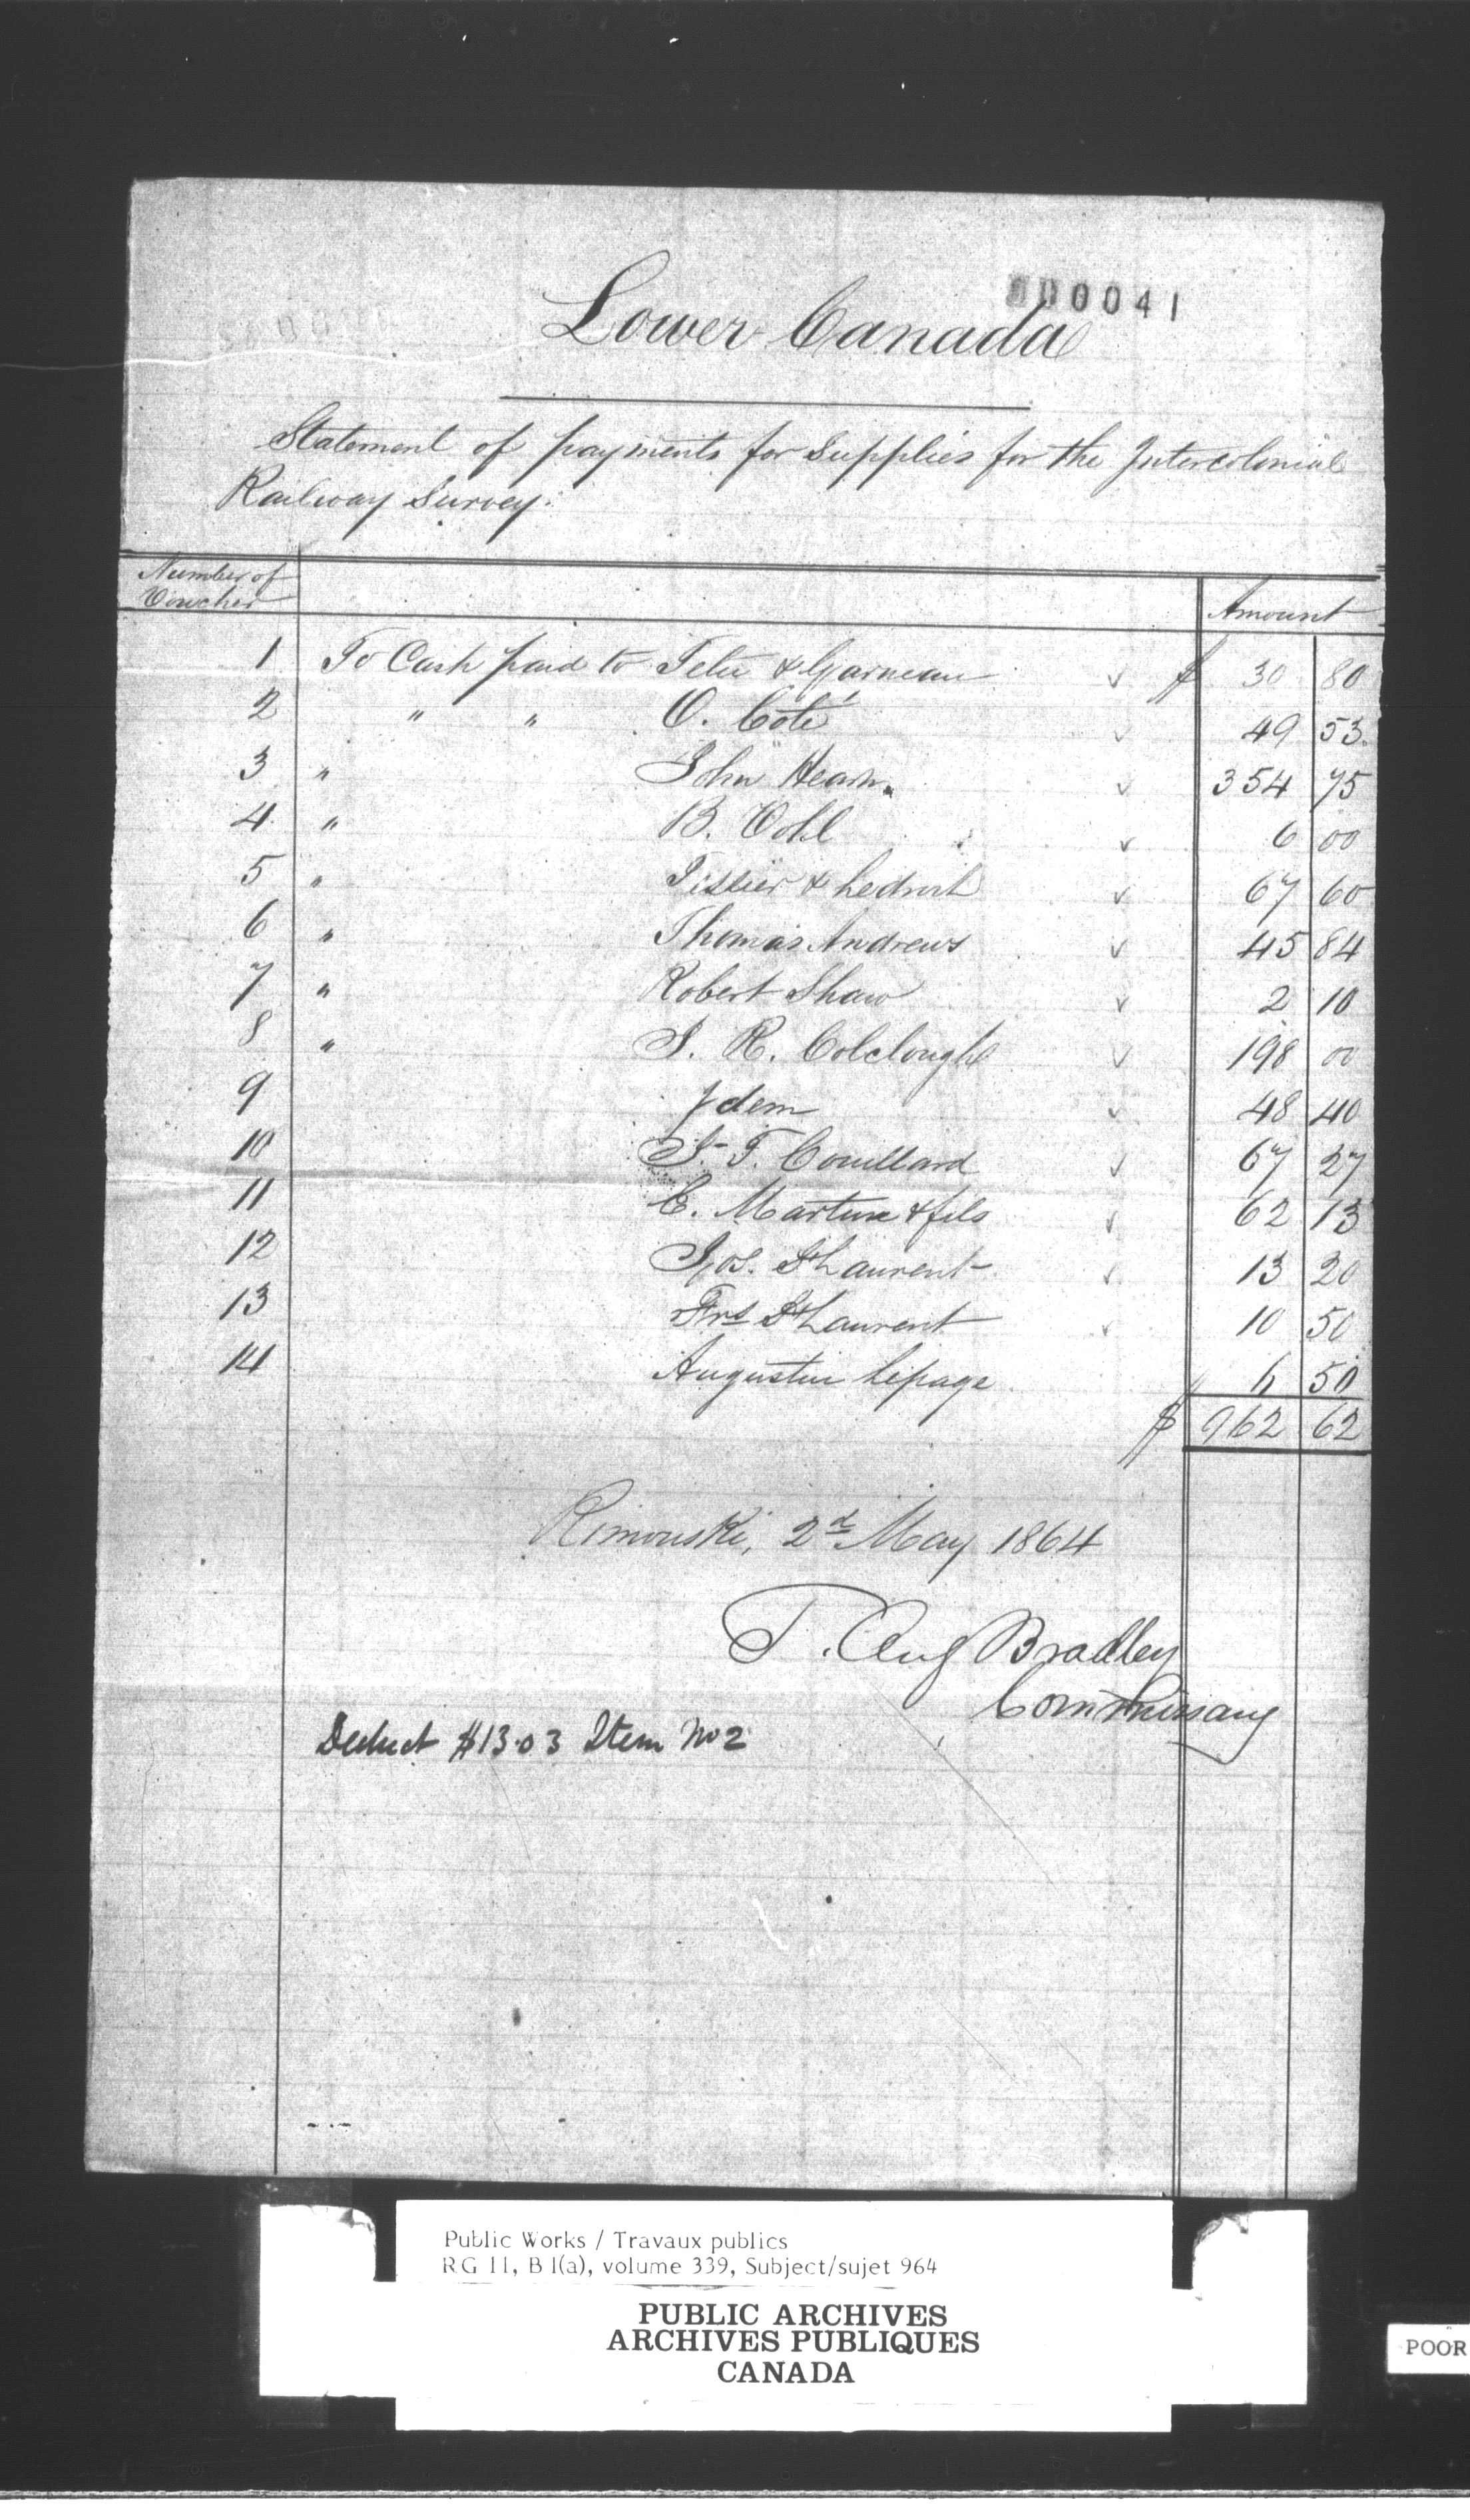 000041
Lower Canada
Statement of payments for Supplies for the Intercolonial
Railway Survey:
Number of Voucher Amount
1 To Cash paid to Tetu & Garneau $ 30 80
2 " " O. Coté 49 53
3 " John Hearn 354 75
4 " B. 6 00
5 " Tissier & Ledroit 67 60
6 " Thomas Andrews 45 84
7 " Robert Shaw 2 10
8 " J. R. Colclough 198 00
9 Idem 48 40
10 J. T. Couillard 67 27
11 E. Martin & fils 62 13
12 Jos. St Laurent 13 20
13 Frs St Laurent 10 50
14 Augustin Lepage 6 50
$ 962 62
Rimouski, 2d May 1864
T. Aug Bradley
Commissary
Deduct $13.03 Item No 2
Public Works / Travaux publics
RG 11, B 1(a), volume 339, Subject/sujet 964
PUBLIC ARCHIVES
ARCHIVES PUBLIQUES
CANADA
POOR